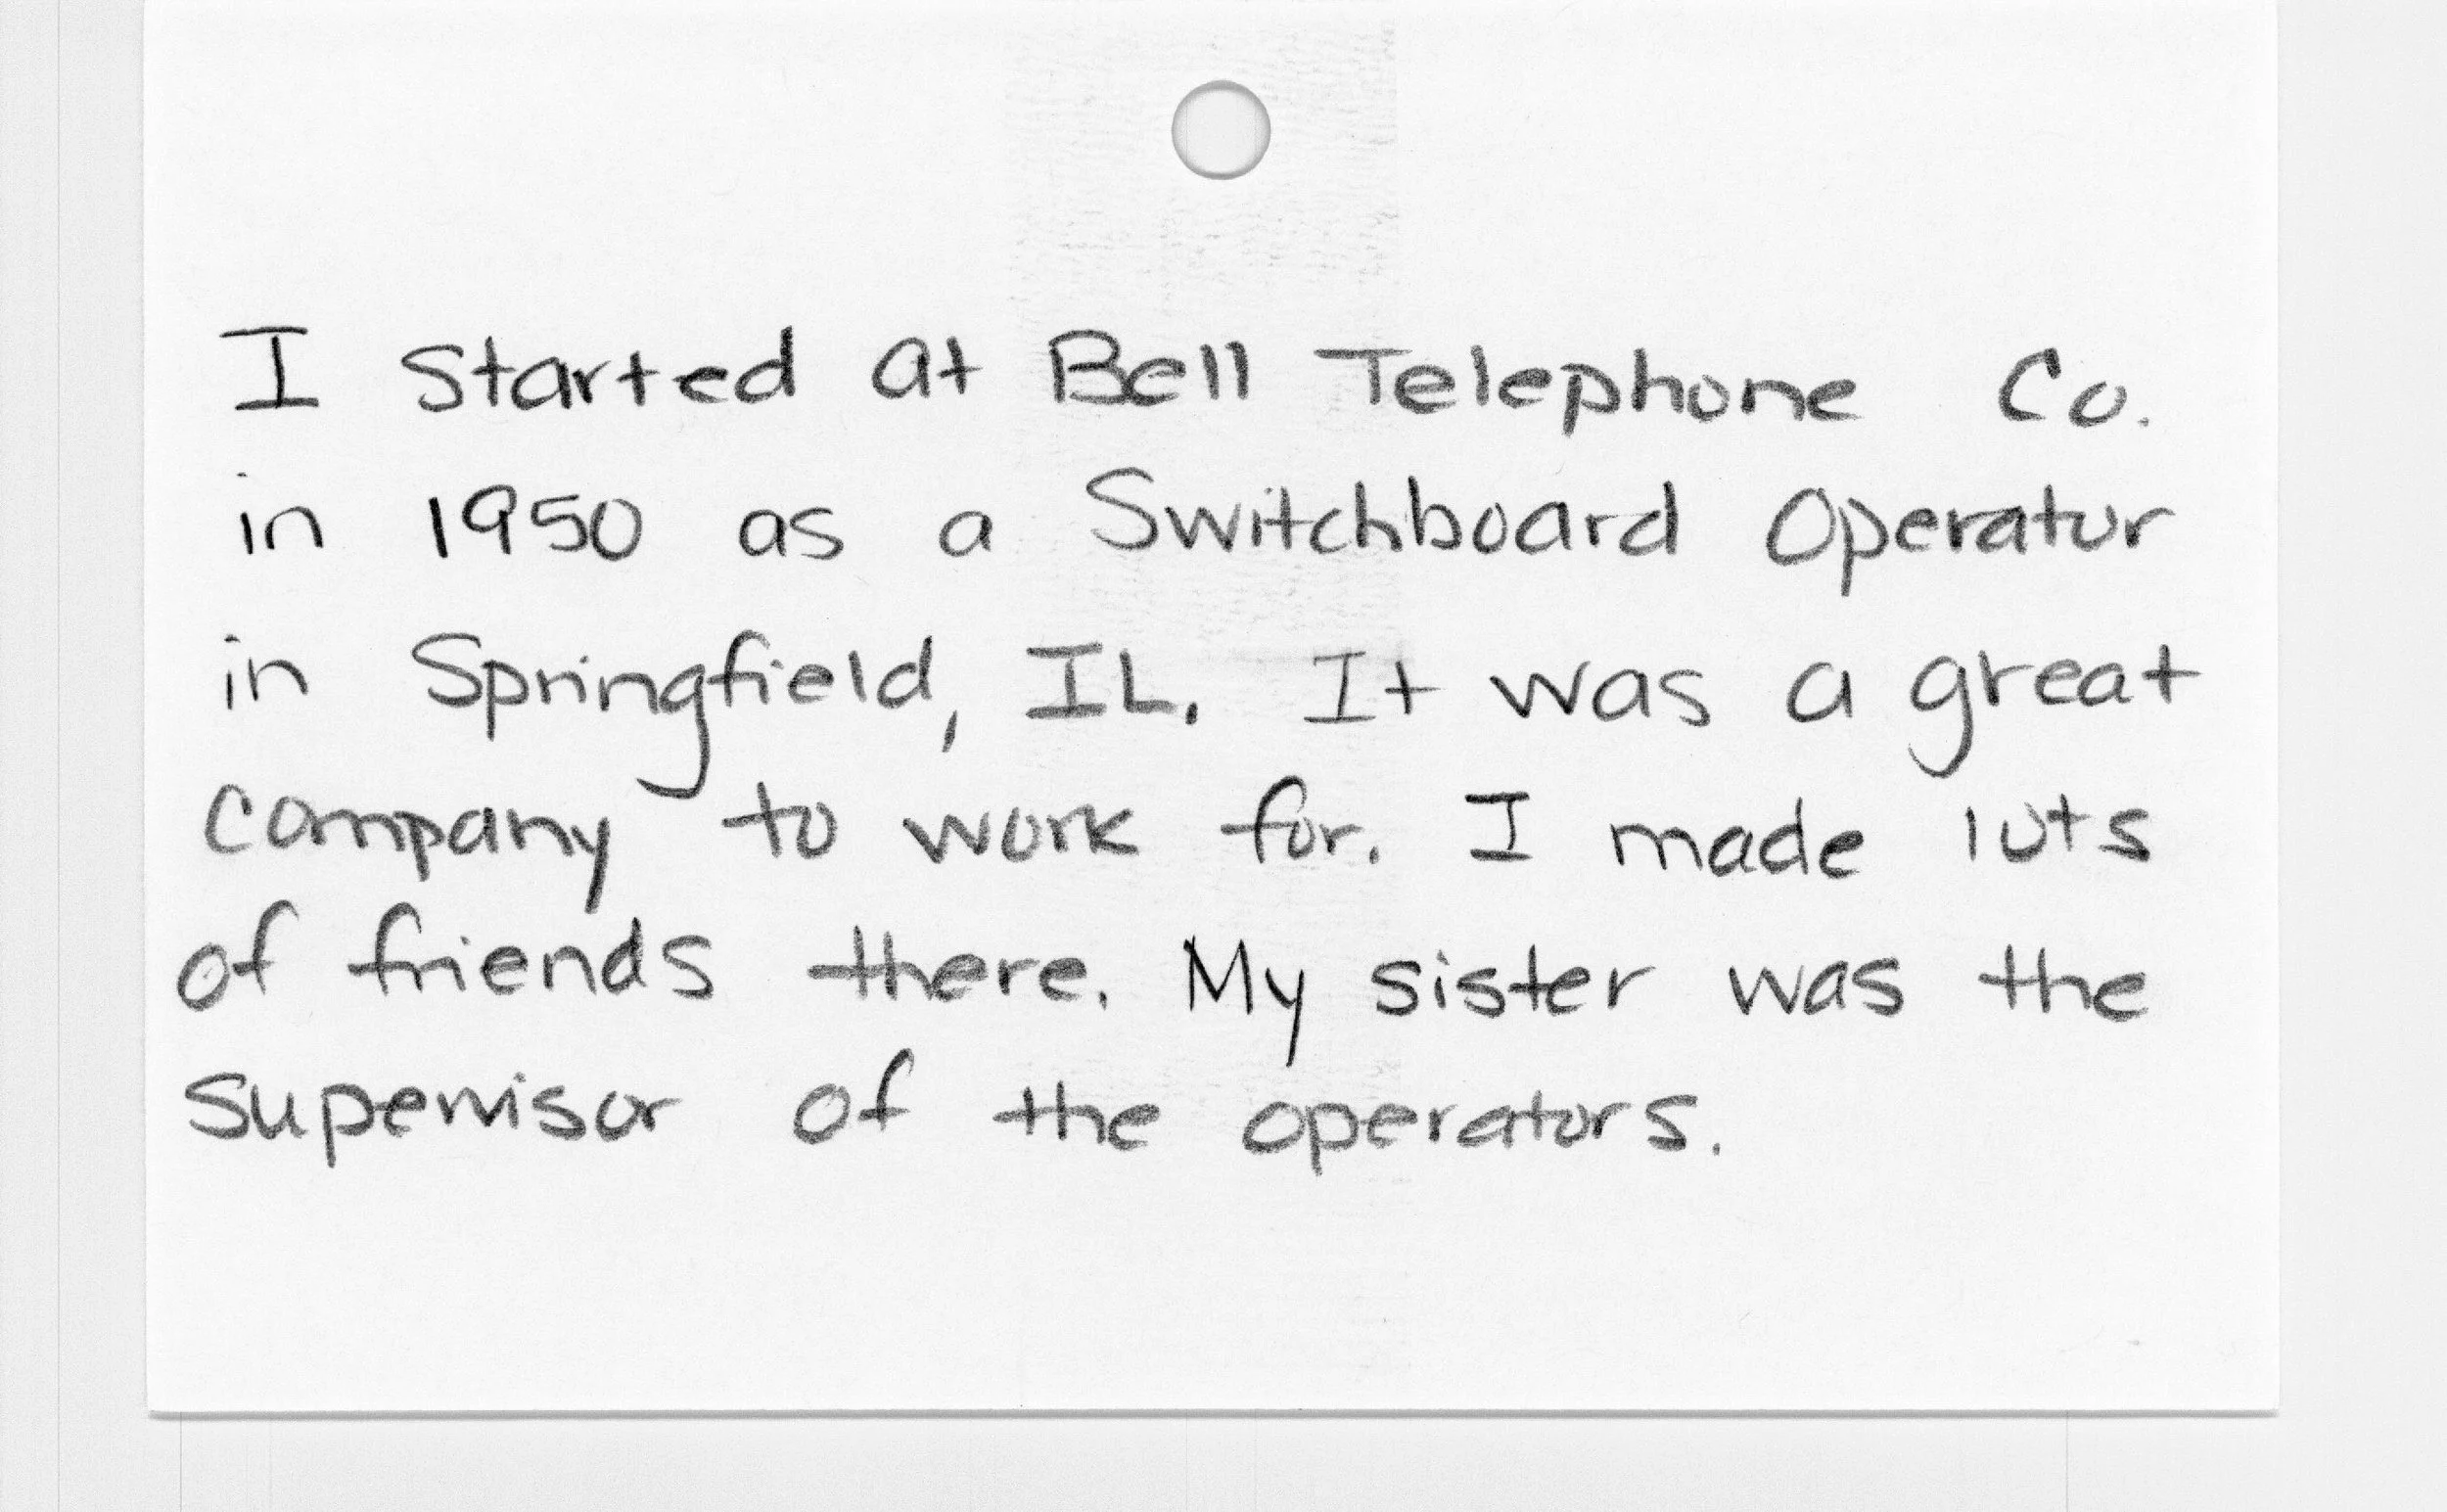 I started at Bell Telephone Co.
in 1950 as a Switchboard Operator
in Springfield, IL. It was a great
company to work for. I made lots
of friends there. My sister was the
supervisor of the operators.